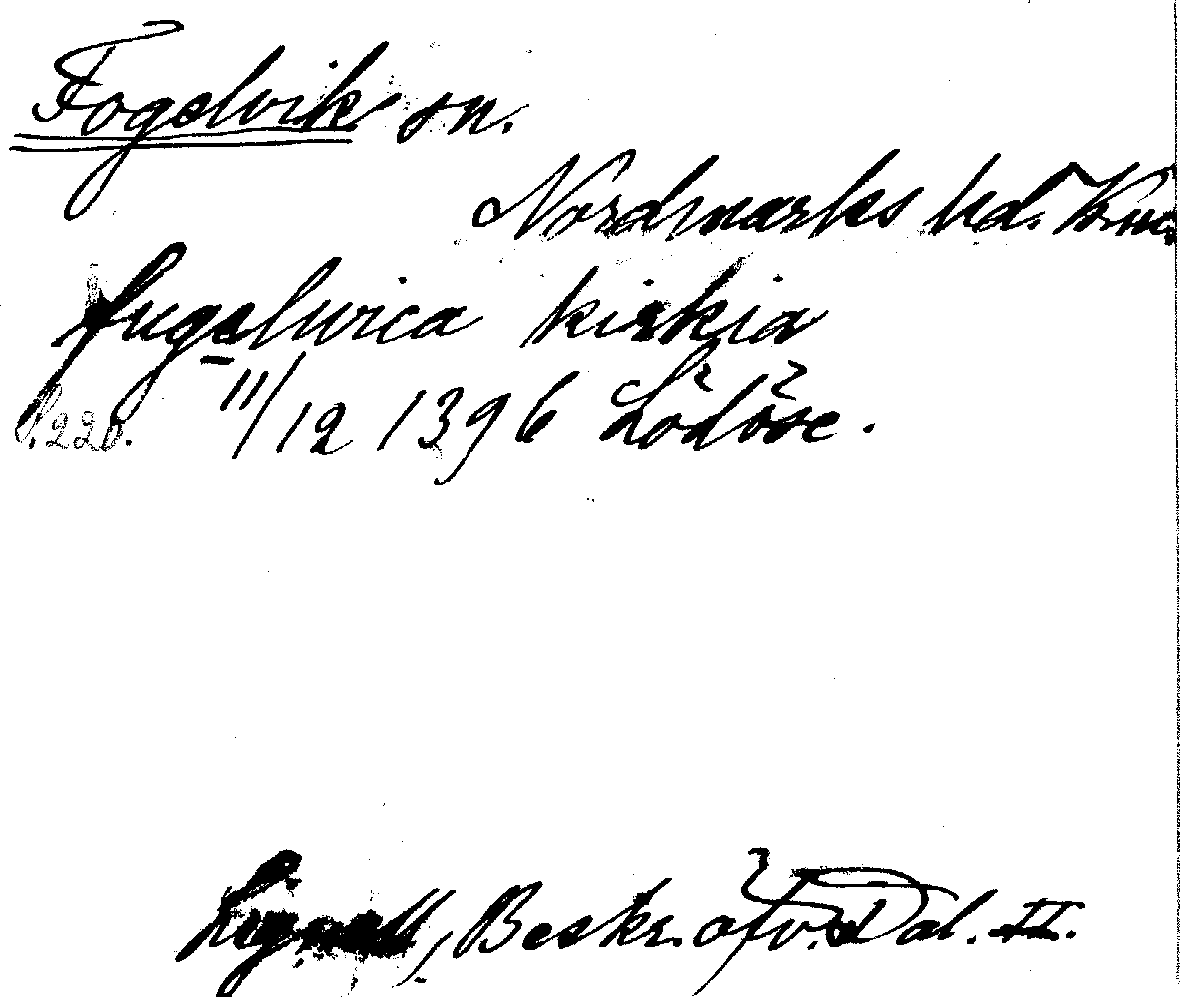 Fogelvik sn.
Nordmarks hd. Vrml.
fugelwica kirkia
s. 220. 11/12 1396 Lödöse.
Lignell, Beskr. öfv. Dal. II.